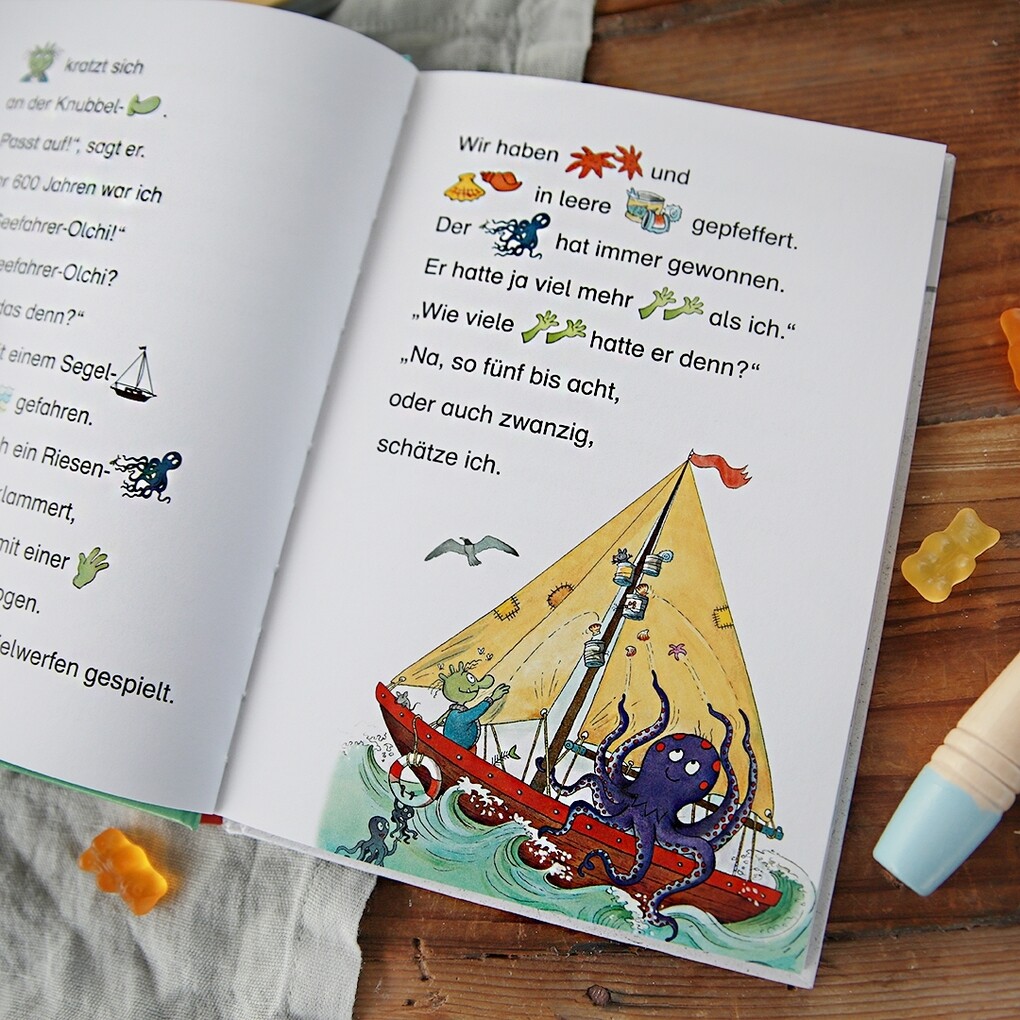 kratzt sich
an der Knubbel- .
Passt auf!“, sagt er.
600 Jahren war ich
Seefahrer-Olchi!“
Seefahrer-Olchi?
das denn?“
einem Segel-
gefahren.
ein Riesen-
mit einer
gespielt.
Wir haben und
in leere gepfeffert.
Der hat immer gewonnen.
Er hatte ja viel mehr als ich.“
„Wie viele hatte er denn?“
„Na, so fünf bis acht,
oder auch zwanzig,
schätze ich.